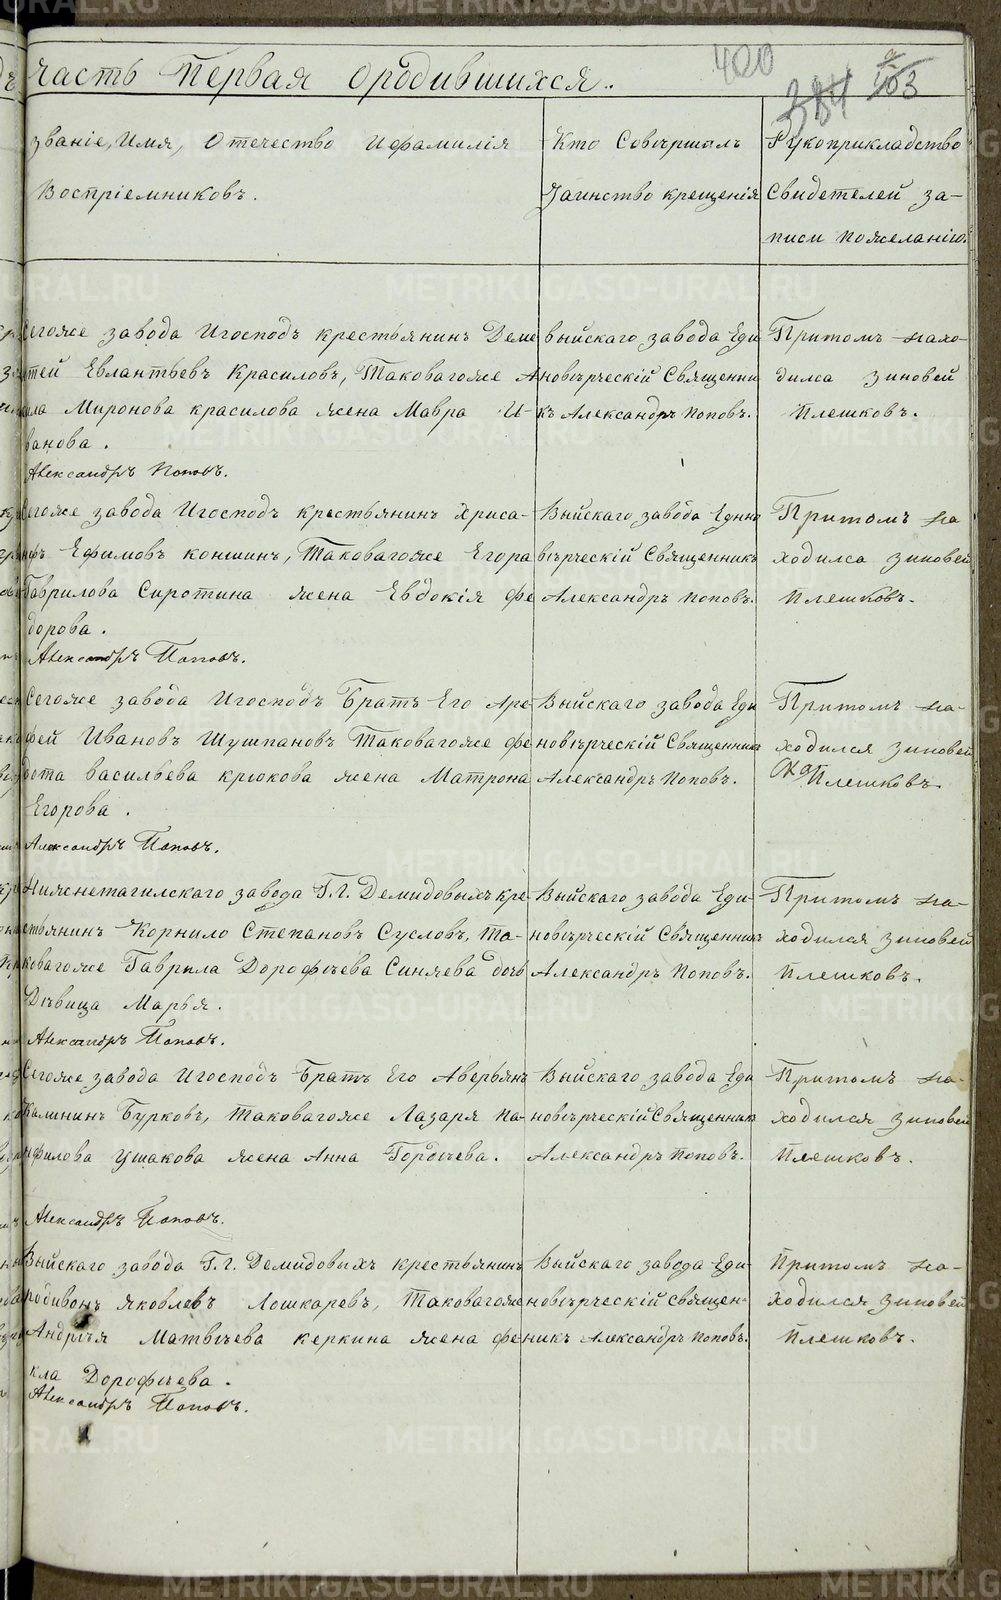 часть Первая ородившихся..
400
384
403
званіе, Имя, Отечество Ифамилія
Воспріемниковъ.
Кто Совѣршилъ
Таинство крещенія
Рукоприкладство
Свидетелей за-
писи пожеланію.
Сегоже завода Игосподъ крестьянинъ Деме
тей Евлантьевъ Красиловъ, Таковагоже А
Миронова красилова жена Мавра И-
ванова.
Александръ Поповъ.
выйскаго завода Еди
новѣрческій Священни
къ Александръ Поповъ.
Притомъ нахо-
дилса зиновей
Плешковъ.
Сегоже завода Игосподъ крестьянинъ Хриса-
нфъ Ефимовъ коншинъ, Таковагоже Егора
Гаврилова Сиротина жена Евдокія фе
дорова.
Александръ Поповъ.
Выйскаго завода Едино
вѣрческій Священникъ
Александръ Поповъ.
Притомъ на
ходилса зиновей
Плешковъ.
Сегоже завода Игосподъ Братъ Его Аре
фей Ивановъ Шушпановъ Таковагоже фе
дота васильева крюкова жена Матрона
Егорова.
Александръ Поповъ.
Выйскаго завода Еди
новѣрческій Священникъ
Александръ Поповъ.
Притомъ на-
ходился зиновей
Плешковъ.
Нижнетагилскаго завода Г.г. Демидовыхъ кре
стьянинъ Корнило Степановъ Сусловъ, Та-
ковагоже Гаврила Дорофѣева Синяева дочь
Дѣвица Марья.
Александръ Поповъ.
Выйскаго завода Еди-
новѣрческій Священникъ
Александръ Поповъ.
Притомъ на-
ходился зиновей
Плешковъ.
Сегоже завода Игосподъ Братъ Его Аверьянъ
Калининъ Бурковъ, таковагоже Лазаря Па-
нфилова ушакова жена Анна Гордѣева.
Александръ Поповъ.
Выйскаго завода Еди
новѣрческій Священникъ
Александръ Поповъ.
Притомъ на-
ходился зиновей
Плешковъ.
Выйскаго завода Г.г. Демидовыхъ крестьянинъ
родивонъ яковлевъ Лошкаревъ, Таковагоже
Андрѣя Матвѣева керкина жена фе
кла Дорофѣева.
Александръ Поповъ.
Выйскаго завода Еди-
новѣрческій священ-
никъ Александръ поповъ.
Притомъ на-
ходился зиновей
Плешковъ.
METRIKI.GASO-URAL.RU